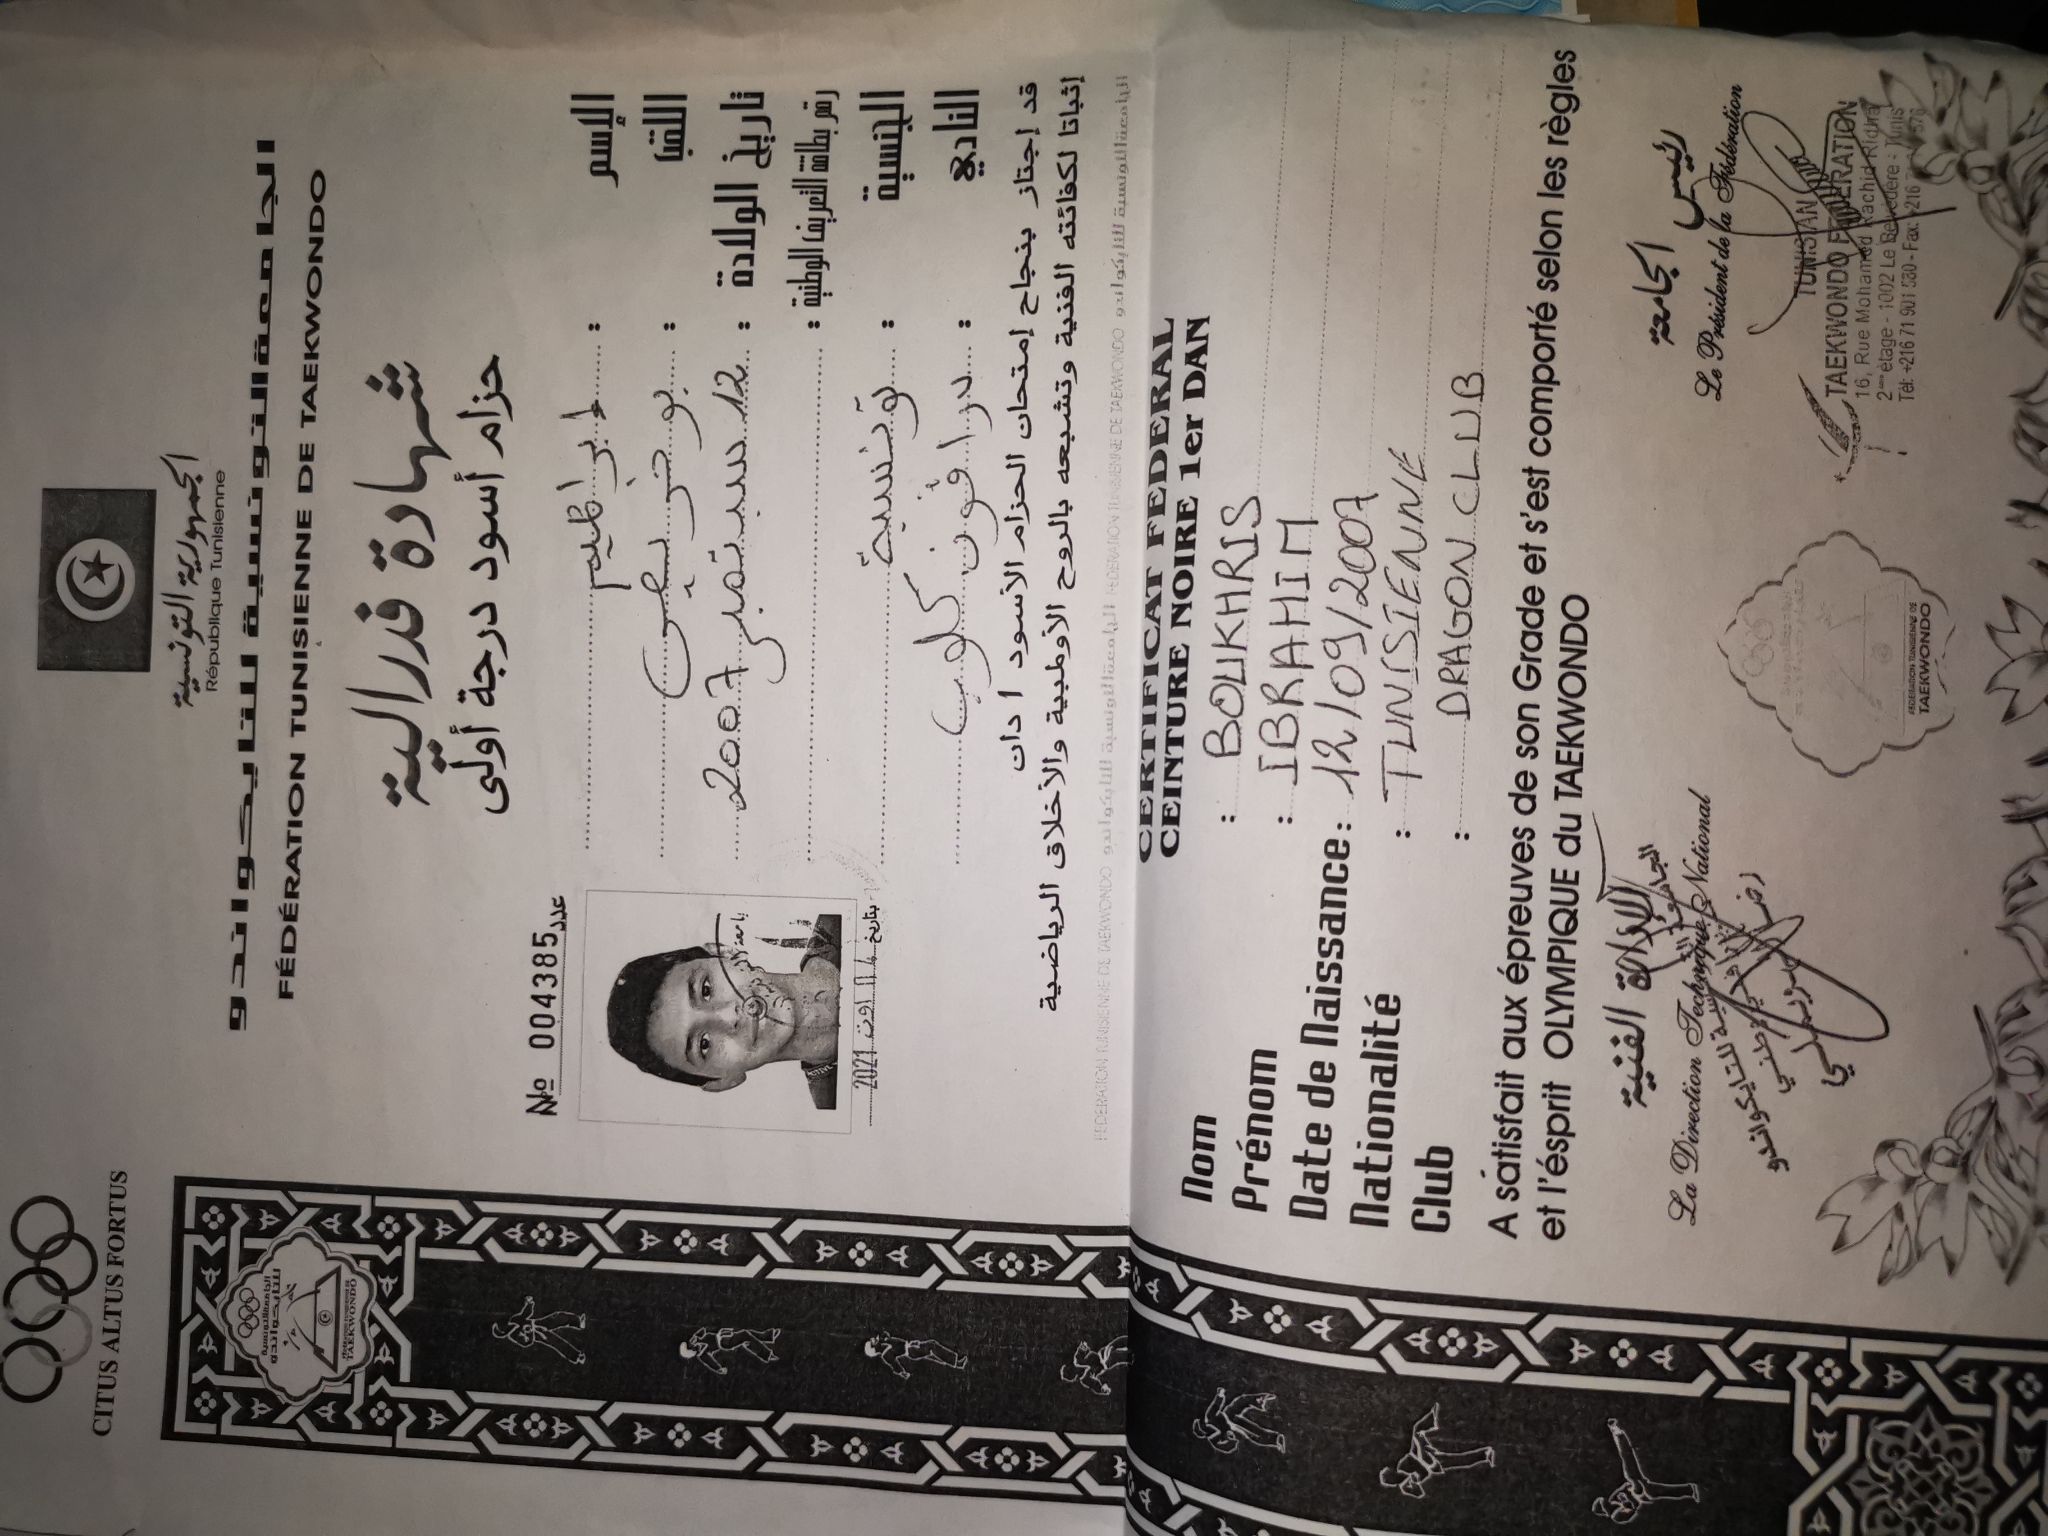 CITUS ALTUS FORTUS
الجمهورية التونسية
République Tunisienne
الجامعة التونسية للتايكواندو
FÉDÉRATION TUNISIENNE DE TAEKWONDO
شهادة فدرالية
حزام أسود درجة أولى
№ 004385 عدد
الإسم : ابراهيم
اللقب : بوخريص
تاريخ الولادة : 12 سبتمبر 2007
رقم بطاقة التعريف الوطنية :
الجنسية : تونسية
النادي : دراقون كلوب
بتاريخ 14 اوت 2021
قد إجتاز بنجاح إمتحان الحزام الأسود 1 دان
إثباتا لكفائته الفنية وتشبعه بالروح الأولمبية والأخلاق الرياضية
FEDERATION TUNISIENNE DE TAEKWONDO الجامعة التونسية للتايكواندو FEDERATION TUNISIENNE DE TAEKWONDO الجامعة التونسية للتايكواندو
CERTIFICAT FEDERAL
CEINTURE NOIRE 1er DAN
Nom : BOUKHRIS
Prénom : IBRAHIM
Date de Naissance : 12/09/2007
Nationalité : TUNISIENNE
Club : DRAGON CLUB
A satisfait aux épreuves de son Grade et s'est comporté selon les règles
et l'ésprit OLYMPIQUE du TAEKWONDO
الإدارة الفنية
La Direction Technique National
رئيس الجامعة
Le Président de la Fédération
TUNISIAN
TAEKWONDO FEDERATION
16, Rue Mohamed Rachid Ridha
2ème étage - 1002 Le Belvédère - Tunis
Tél: +216 71 901 580 - Fax: +216
FEDERATION TUNISIENNE DE
TAEKWONDO